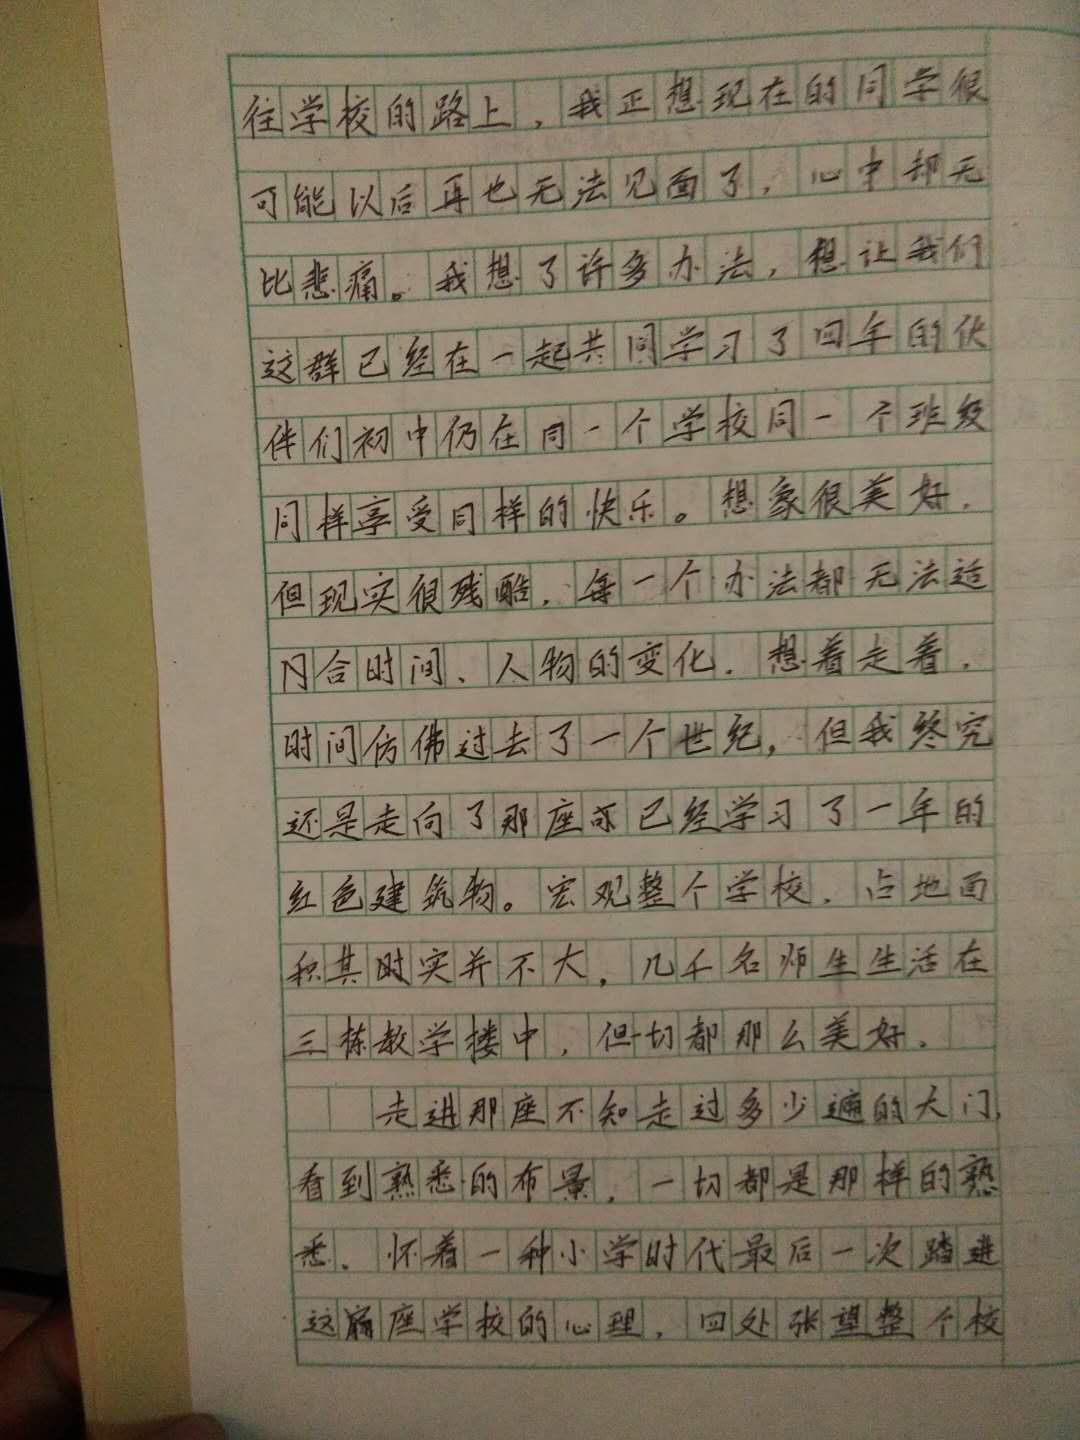 往学校的路上，我正想现在的同学很
可能以后再也无法见面了，心中却无
比悲痛。我想了许多办法，想让我们
这群已经在一起共同学习了四年的伙
伴们初中仍在同一个学校同一个班级
同样享受同样的快乐。想象很美好，
但现实很残酷，每一个办法都无法适
合时间、人物的变化。想着走着，
时间仿佛过去了一个世纪，但我终究
还是走向了那座亦已经学习了一年的
红色建筑物。宏观整个学校，占地面
积其时实并不大，几千名师生生活在
三栋教学楼中，但一切都那么美好。
走进那座不知走过多少遍的大门，
看到熟悉的布景，一切都是那样的熟
悉、怀着一种小学时代最后一次踏进
这座学校的心理，四处张望整个校